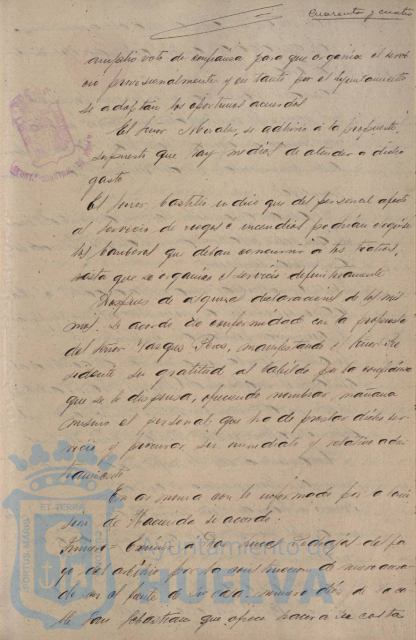 Cuarenta y cuatro
amplio voto de confianza para que organice el servi
cio provisionalmente y en tanto por el Ayuntamiento
se adoptan los oportunos acuerdos
El Señor Morales, se adhirió á la propuesta,
supuesto que hay medios de atender a dicho
gasto
El Señor Castilla indicó que del personal afecto
al servicio de riegos é incendios podrían
los bomberos que deban concurrir a los teatros,
hasta que se organice el servicio definitivamente
Despues de algunas declaraciones de los mis
mos, se acordó de conformidad con la propuesta
del Señor Vazquez Perez, manifestando el Señor Pre
sidente su gratitud al Cabildo por la confianza
que se le dispensa, ofreciendo nombrar mañana
mismo el personal, que ha de prestar dicho ser
vicio y procurar su inmediato y
En armonia con lo informado por la Comi
sion de Hacienda se acordó:
Primero = Eximir a Don
del pa
go del arbitrio por la construccion de
ra en el frente de su casa numero diez de la ca
lle San Sebastian que ofrece hacer a su costa
Ayuntamiento de
HUELVA
PORTUS MARIS
ET TERRAE